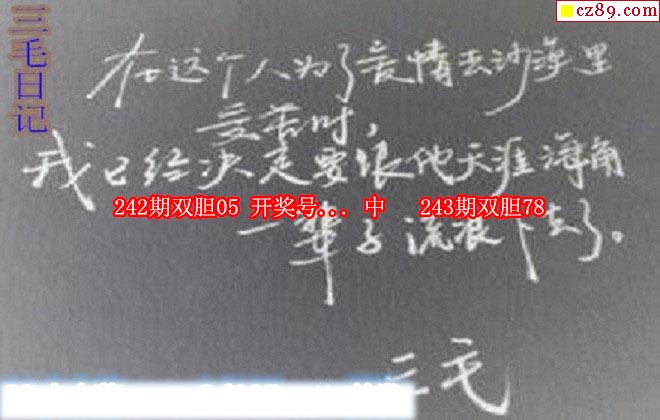 cz89.com
三毛日记
在这个人为了爱情去沙漠里
受苦时,
我已经决定要跟他天涯海角
242期双胆05 开奖号... 中 243期双胆78
一辈子流浪下去了。
三毛